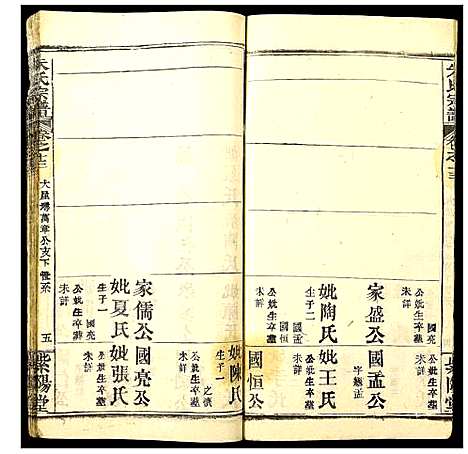 朱氏宗譜
卷之十三
紫陽堂
家盛公
公妣生卒墓
未詳
妣陶氏
生子二
國孟
國恒
公妣生卒墓
未詳
國孟公
字繼孟
妣王氏
公妣生卒墓
未詳
國恒公
妣陳氏
生子一
之慎
公妣生卒墓
未詳
家儒公
妣夏氏
生子一
國亮
公妣生卒墓
未詳
國亮公
妣張氏
公妣生卒墓
未詳
朱氏宗譜
卷之十三
大屋塆萬章公支下世系
五
紫陽堂